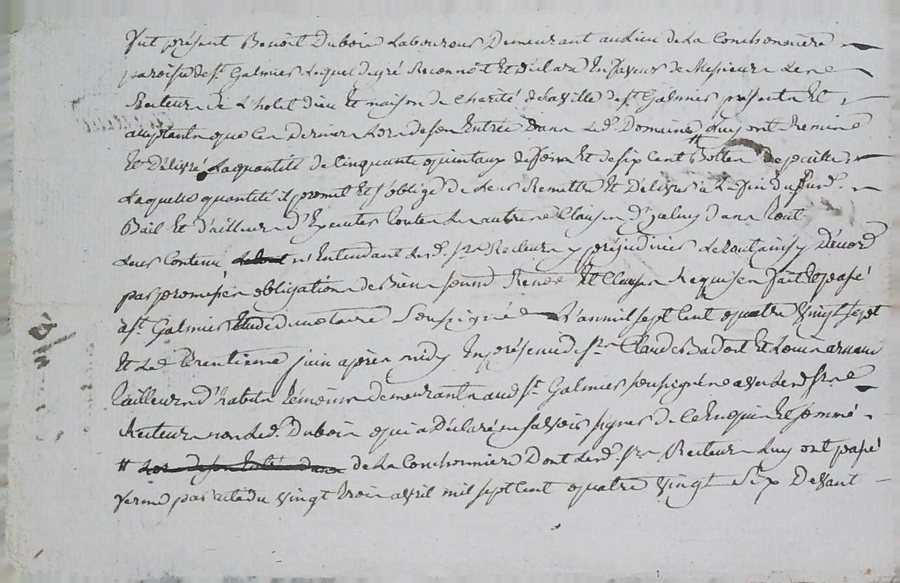 fut présent Benoit Dubois Laboureur Demeurant au Lieu de La Conchonniere
paroisse de St. Galmier Lequel de gré Reconnoit Et déclare En faveur de Messieurs Les
Recteurs de L'hotel dieu Et maison de Charité de la ville de St. Galmier présents Et
acceptants que Ces Derniers Lors de son Entrée Dans Led. Domaine luy ont Remis
Et Délivré La quantité de Cinquante quintaux de foin Et de six Cent Bottes de paille
Laquelle quantité il promet Et s'oblige de Leur Remettre Et Délivrer a La fin du susd.
Bail Et d'ailleurs d'Executer toutes Les autres Clauses d'yceluy Dans tout
Leur Contenu n'Entendant Lesd. srs Recteurs y préjudicier Le tout ainsy D'acord
par promesses obligations de Biens soumd. Renon. Et Clauses Requises fait Et passé
a St. Galmier Etude du notaire Soussigné L'an mil sept Cent quatre vingt sept
Et Le trentieme juin après midy En présence de srs Claude Badort Et Louis arnaud
tailleurs d'habits témoins demeurants aud. St. Galmier soussignés avec Lesd. srs
Recteurs non Led. Dubois qui a Déclaré ne savoir signer de Ce Enquis Et sommé
# Lors de son Entrée dans de La Conchonniere Dont Lesd. srs Recteurs Luy ont passé
ferme par acte du vingt trois avril mil sept Cent quatre vingt six Devant